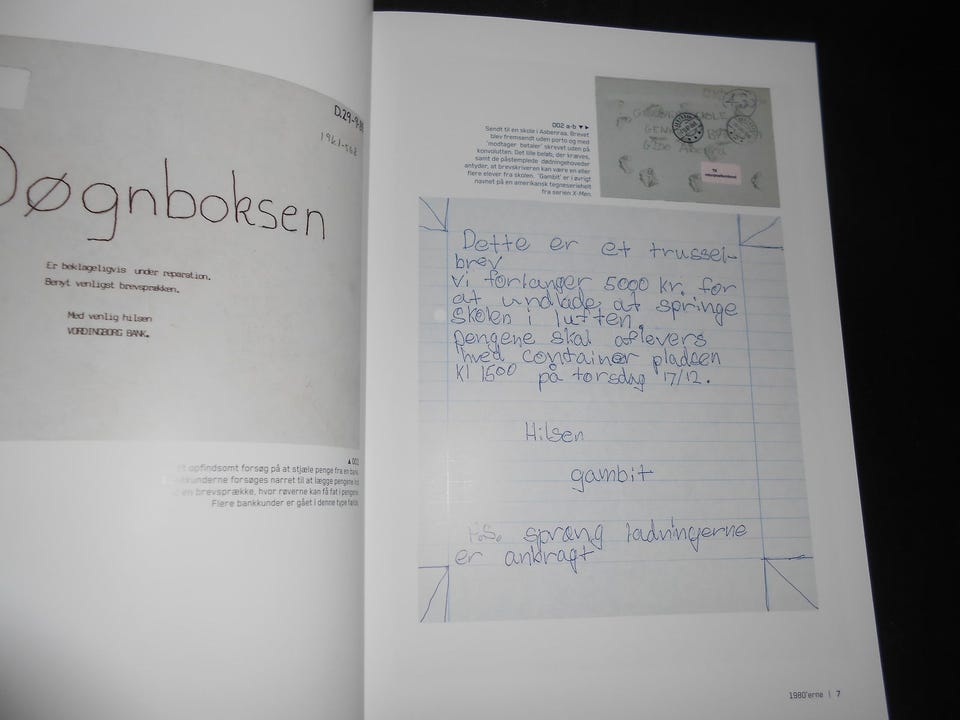 D.29-9-8
1961-562
Døgnboksen
Er beklageligvis under reparation.
Benyt venligst brevsprækken.
Med venlig hilsen
VORDINGBORG BANK.
▲001
opfindsomt forsøg på at stjæle penge fra en bank.
kunderne forsøges narret til at lægge pengene ind
en brevsprække, hvor røverne kan få fat i pengene.
Flere bankkunder er gået i denne type fælde.
002 a-b ▼►
Sendt til en skole i Aabenraa. Brevet
blev fremsendt uden porto og med
'modtager betaler' skrevet uden på
konvolutten. Det lille beløb, der kræves,
samt de påstemplede dødningehoveder
antyder, at brevskriveren kan være en eller
flere elever fra skolen. 'Gambit' er i øvrigt
navnet på en amerikansk tegneseriehelt
fra serien X-Men.
6200
Dette er et trussel-
brev
vi forlanger 5000 kr. for
at undlade at springe
skolen i luften.
pengene skal aflevers
hved container pladsen
Kl 1500 på torsdag 17/12.
Hilsen
gambit
P.S. spræng ladningerne
er ankragt
1980'erne | 7